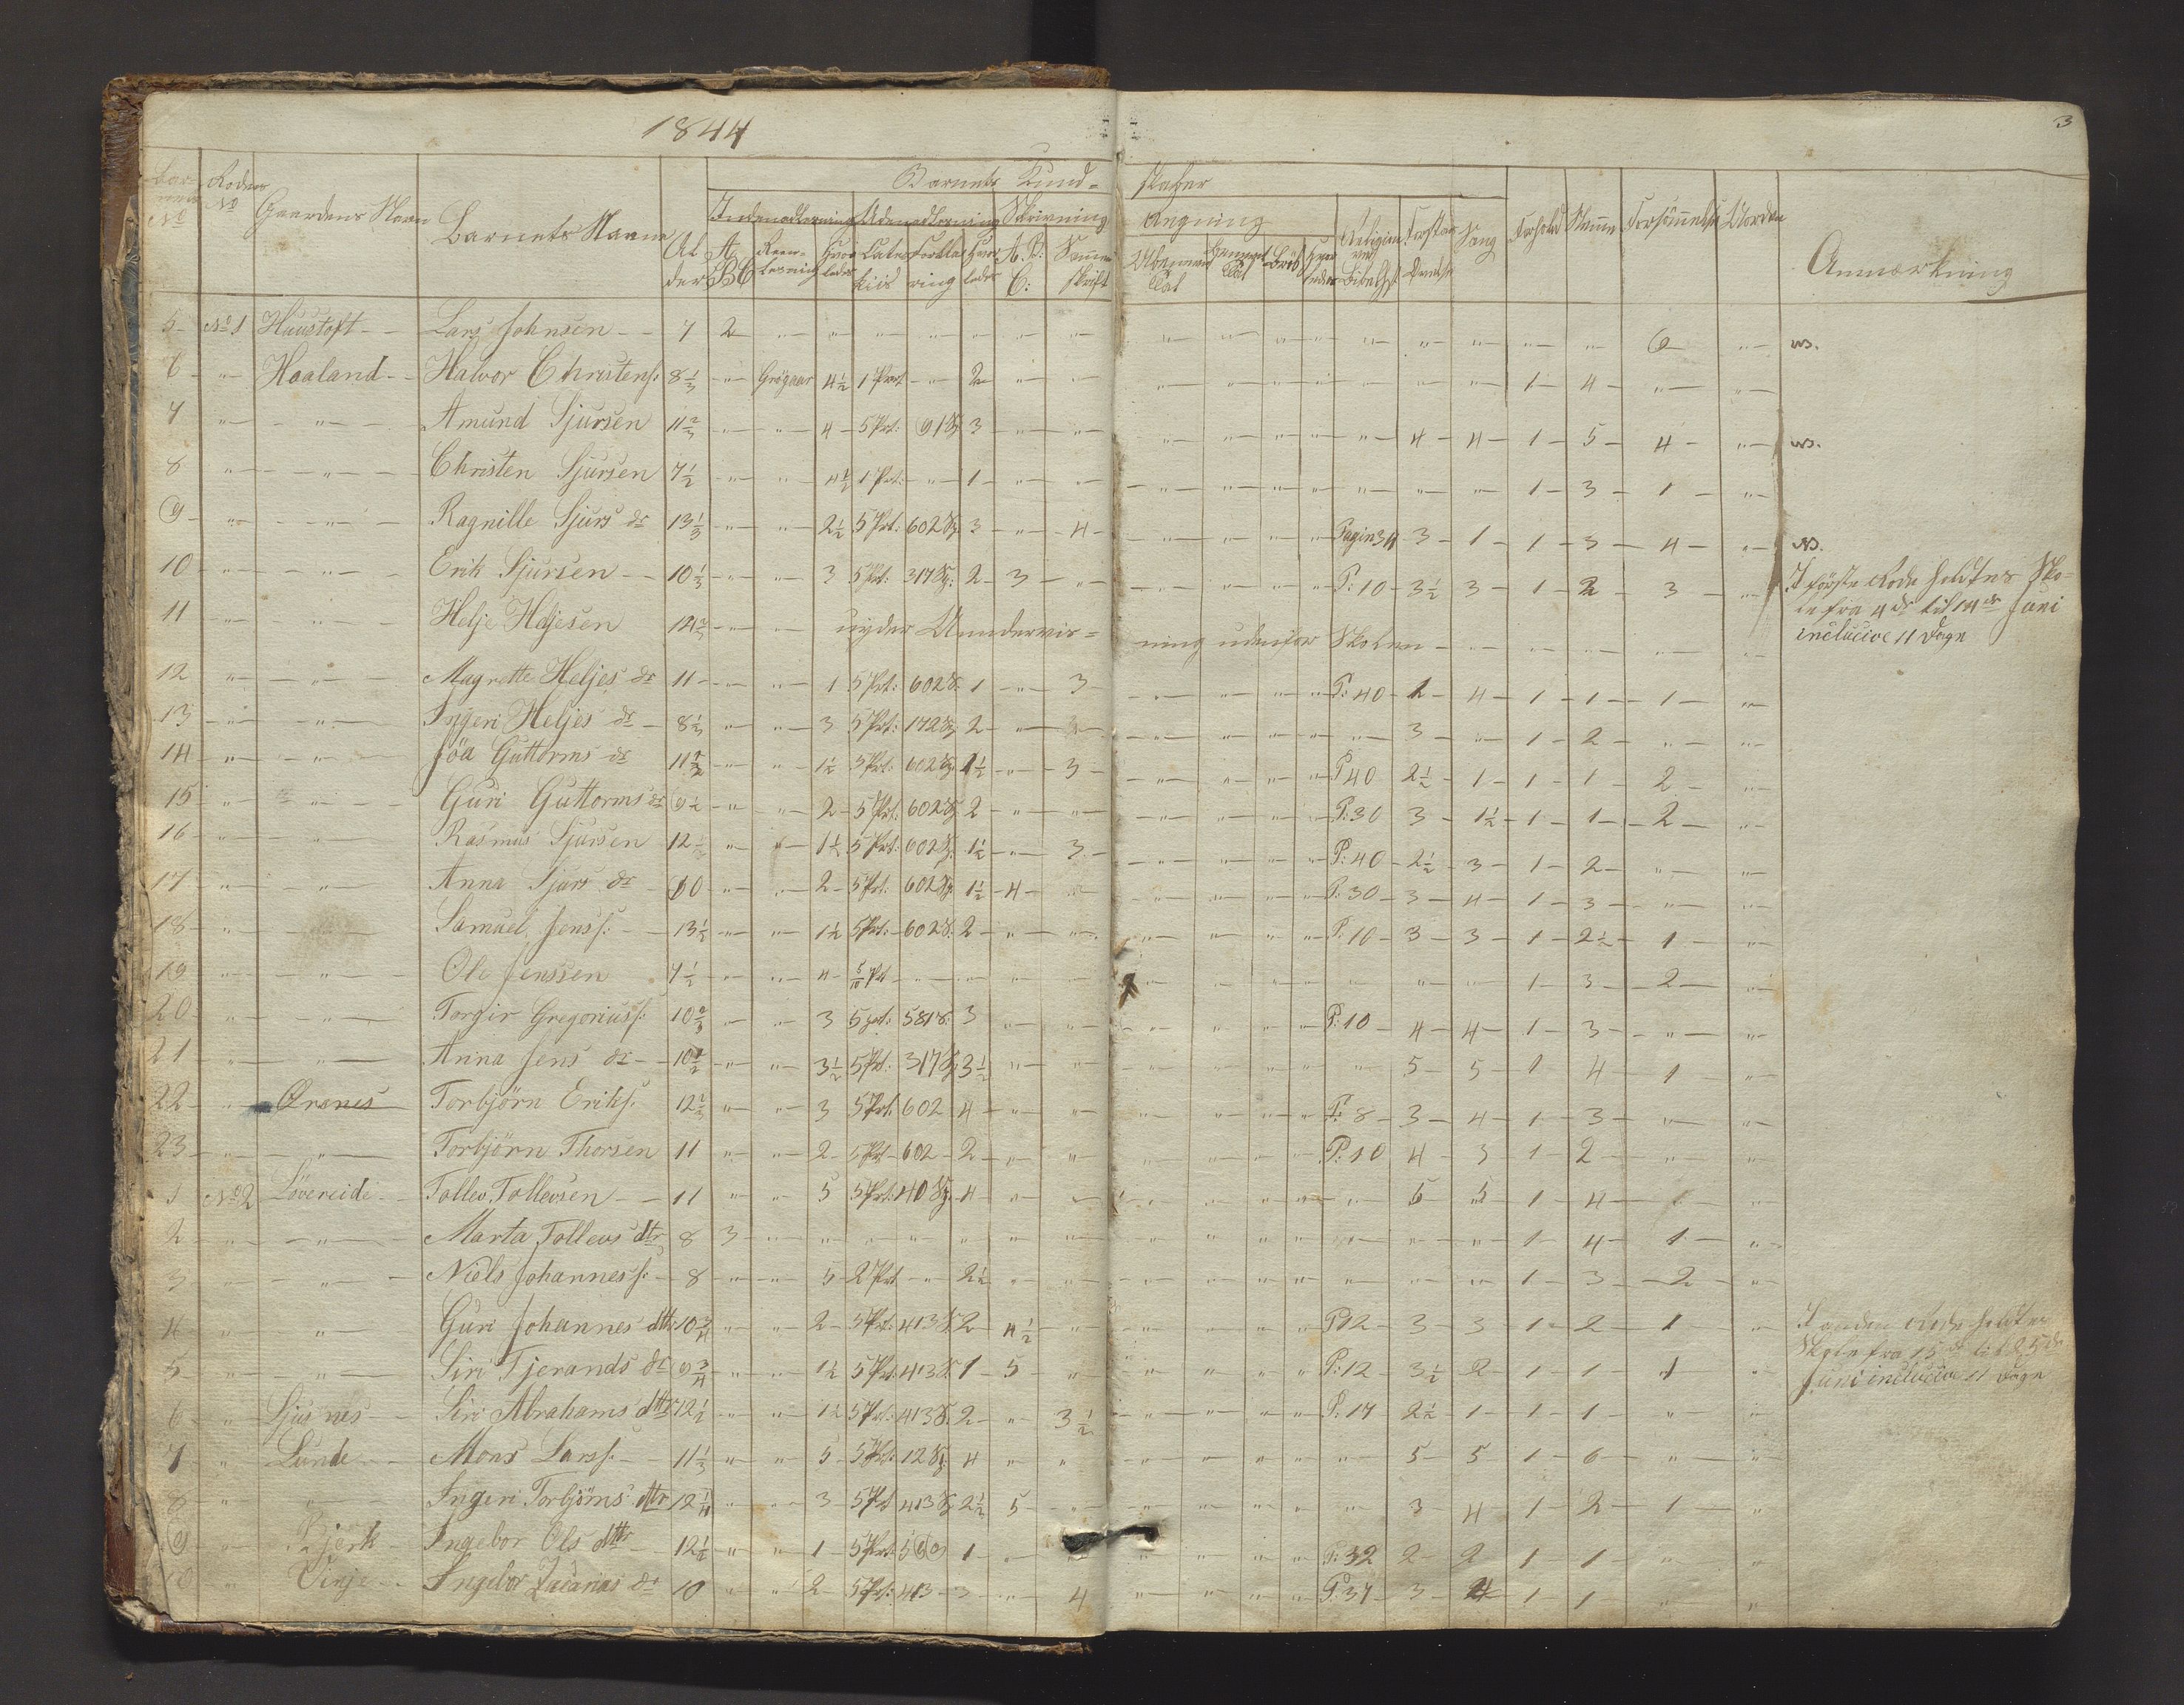 1844
3
Barnets Kund= skaber
No Rodens No Gaardens Navn Barnets Navn Alder
Indenadlæsning Udenadlæsning Skrivning Regning Religion Forstand Sang Forhold Stemme Forsømmelse Anmærkning
A B C A. B. C:
5 No 1 Huustoft Lars Johnsen 7 2 " " " " " " " " " " " " " " " " 6 " NB.
6 " Haaland Halvor Christens: 8 1/3 " 4 1/2 1 Part " 2 " " " " " " " " " 1 4 " "
7 " " Amund Sjursen 11 2/3 " " 4 5 Prt: 91 3 " " " " " " " 4 4 1 5 4 " NB.
8 " " Christen Sjursen 7 1/2 " " 4 1/2 1 Prt: " 1 " " " " " " " " " 1 3 1 "
9 " " Ragnille Sjurs dr 13 1/3 " " 2 1/2 5 Prt: 602 3 " 4 " " " " Pagin 34 3 1 1 3 4 " NB.
10 " " Erik Sjursen 10 1/3 " " 3 5 Prt: 317 2 3 " " " " " P: 10 3 1/2 3 1 2 3 "
I første Rode holdtes Sko-
le fra 4de til 14de Juni
inclucive 11 Dage
11 " " Helje Heljesen " " nyder Unndervis= ning udenfor Skolen " " " " "
12 " " Magrette Heljes dr 11 " " 1 5 Prt: 602 1 " 3 " " " " P: 40 2 4 1 1 1 "
13 " " Ingeri Heljes dr 8 1/3 " " 3 5 Prt: 172 2 " " " " " " 3 " 1 2 " "
14 " " Jöa Guttorms dr 11 " " 1 1/2 5 Prt: 602 1 1/2 " 3 " " " " P 40 2 1/2 1 1 1 2 "
15 " " Guri Guttorms dr 9 1/2 " " 2 5 Prt: 602 2 " " " " " " P: 30 3 1 1/2 1 1 2 "
16 " " Rasmus Sjursen 12 " " 1 1/2 5 Prt: 602 1 1/2 " 3 " " " " P: 40 2 1/2 3 1 2 " "
17 " " Anna Sjurs dr 10 " " 2 5 Prt: 602 1 1/2 4 " " " " " P: 30 3 4 1 3 " "
18 " " Samuel Jenss: 13 1/2 " " 1 1/2 5 Prt: 602 2 " " " " " " P: 10 3 3 1 2 1/2 1 "
19 " " Ole Jenssen 7 1/2 " " 4 5/10 Prt " " " " " " " " " " " 1 3 2 "
20 " " Torgir Gregoriuss: 10 2/3 " " 3 5 prt: 581 3 " " " " " " P: 10 4 4 1 3 " "
21 " " Anna Jens dr 10 " " 3 1/2 5 Prt: 317 3 1/2 " " " " " " " 5 5 1 4 1 "
22 " Ørenes Torbjörn Eriks: 12 " " 3 5 Prt: 602 4 " " " " " " P: 8 3 4 1 3 " "
23 " " Torbjörn Thorsen 11 " " 2 5 Prt 602 2 " " " " " " P: 10 4 3 1 2 " "
1 No 2 Lövereide Tollev Tollevsen 11 " " 5 5 Prt: 40 4 " " " " " " " 5 1 4 "
2 " " Marta Tollevs dtr 8 3 " " " " " " " " " " " " " " 1 4 1 "
3 " " Niels Johanness: 8 " " 5 2 Prt " 2 1/2 " " " " " " " " " 1 3 2 "
4 " " Guri Johannes dttr 10 3/4 " " 2 5 Prt: 413 2 4 1/2 " " " " " P 12 3 3 1 2 1 "
I anden Rode holdtes
Skole fra 15de til 25de
Juni inclucive 11 Dage
5 " " Siri Tjerands dr 9 3/4 " " 1 1/2 5 Prt: 413 1 5 " " " " " P: 12 3 1/2 2 1 1 1 "
6 " Ljusnes Siri Abrahams dttr 12 1/2 " " 1 1/2 5 Prt: 413 2 " 3 1/2 " " " " P: 17 2 1/2 1 1 1 " "
7 " Lunde Mons Larss: 11 1/3 " " 5 5 Prt: 12 4 " " " " " " " 5 5 1 6 " "
8 " " Ingeri Torbjörns dttr 12 1/4 " " 3 5 Prt 413 2 1/2 5 " " " " " " 3 4 1 2 1 "
9 " Bjerk Ingebor Ols dttr 12 1/2 " " 1 5 Prt: 1 " " " " " " P: 32 2 2 1 1 " "
10 " Vinje Ingebor Zacarias dr 10 " " 2 5 Prt: 413 3 " 4 " " " " P: 37 3 4 1 1 " "